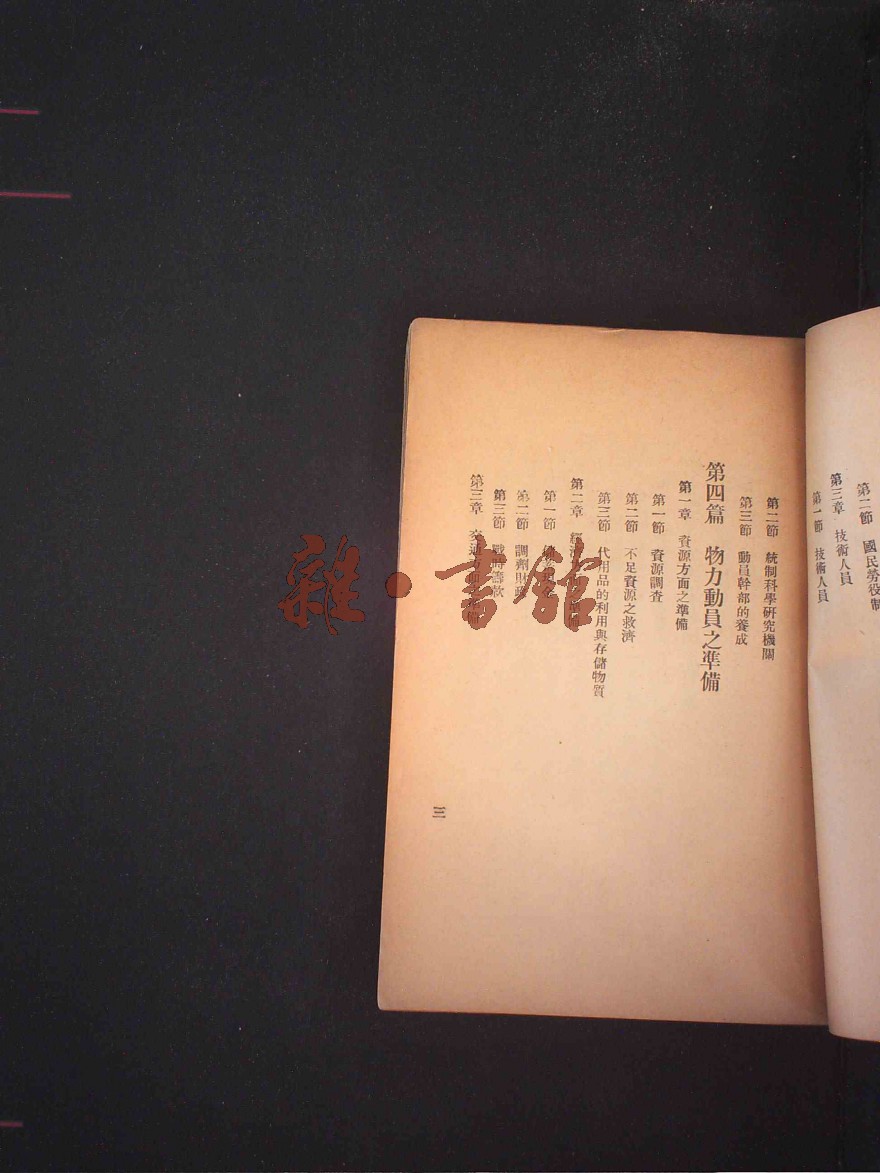 第二節 國民勞役制
第三章 技術人員
第一節 技術人員
第二節 統制科學研究機關
第三節 動員幹部的養成
第四篇 物力動員之準備
第一章 資源方面之準備
第一節 資源調查
第二節 不足資源之救濟
第三節 代用品的利用與存儲物質
第二章 經濟
第一節
第二節 調劑財政
第三節 戰時籌款
第三章 交通方面之準備
三
雜·書館